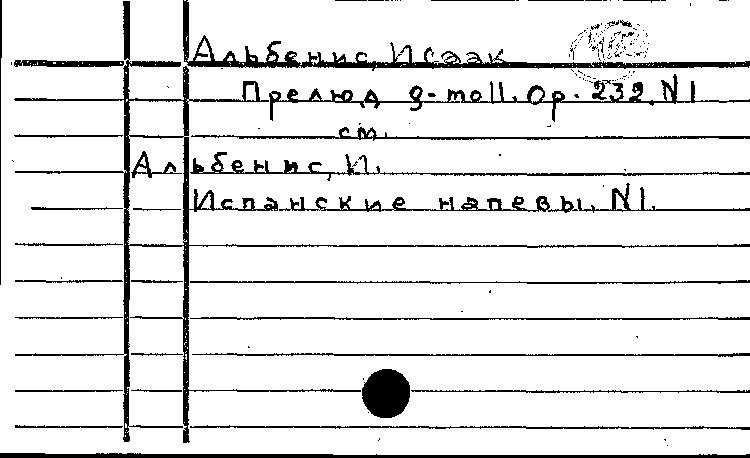 Альбенис, Исаак
Прелюд g-moll. Op. 232. N1
см.
Альбенис, И.
Испанские напевы. N1.